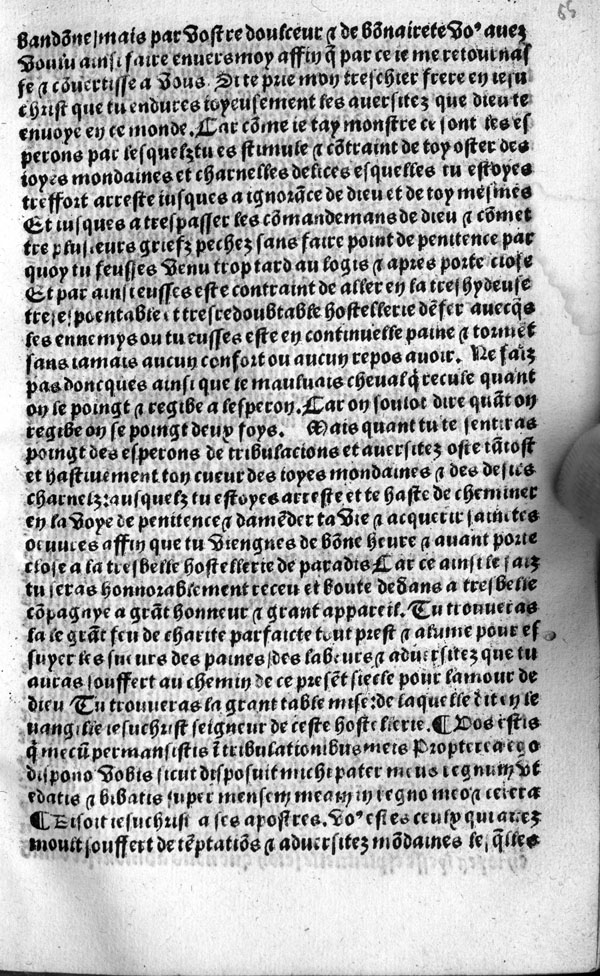 65
bandõne/mais par vostre doulceur ⁊ de bõnairete voꝰ auez
voulu ainsi faire enuers moy affin q̃ par ce ie me retournas
se ⁊ cõuertisse a vous. Si te prie moy treschier frere en iesu
christ que tu endures ioyeusement les auersitez que dieu te
enuoye en ce monde. Car cõme ie tay monstre ce sont les es
perons par lesquelz tu es stimule ⁊ cõtraint de toy oster des
ioyes mondaines et charnelles delices esquelles tu estoyes
treffort arreste iusques a ignorãce de dieu et de toy mesmes
Et iusques a trespasser les cõmandemans de dieu ⁊ cõmet
tre plusieurs griefz pechez sans faire point de penitence par
quoy tu feusses venu trop tard au logis ⁊ apres porte close
Et par ainsi eusses este contraint de aller en la treshydeuse
tresespoentable et tresredoubtable hostellerie dẽfer auecq̃s
les ennemys ou tu eusses este en continuelle paine ⁊ tormẽt
sans iamais aucun confort ou aucun repos auoir. Ne faiz
pas doncques ainsi que le mauluais cheual q̃ recule quant
on le poingt ⁊ regibe a lesperon. Car on soulot dire quãt on
regibe on se poingt deux foys. Mais quant tu te sentiras
poingt des esperons de tribulacions et auersitez oste tãtost
et hastiuement ton cueur des ioyes mondaines ⁊ des desirs
charnelz: ausquelz tu estoyes arreste et te haste de cheminer
en la voye de penitence ⁊ damẽder ta vie ⁊ acquerir sainctes
oeuures affin que tu viengnes de bõne heure ⁊ auant porte
close a la tresbelle hostellerie de paradis Car ce ainsi le faiz
tu seras honnorablement receu et boute dedans a tresbelle
cõpagnye a grãt honneur ⁊ grant appareil. Tu trouueras
la le grãt feu de charite parfaicte tout prest ⁊ alume pour es
suyer les sueurs des paines/des labeurs ⁊ aduersitez que tu
auras souffert au chemin de ce presẽt siecle pour lamour de
dieu Tu trouueras la grant table mise: de laquelle dit en le
uangille iesuchrist seigneur de ceste hostellerie. ¶ Vos estis
q̃ mecũ permansistis ĩ tribulationibus meis Propterea ego
dispono vobis sicut disposuit michi pater meus regnum vt
edatis ⁊ bibatis super mensem meam in regno meo ⁊ cetera
¶ Disoit iesuchrist a ses apostres. Voꝰ estes ceulx qui auez
moult souffert de tẽptatiõs ⁊ aduersitez mõdaines lesq̃lles